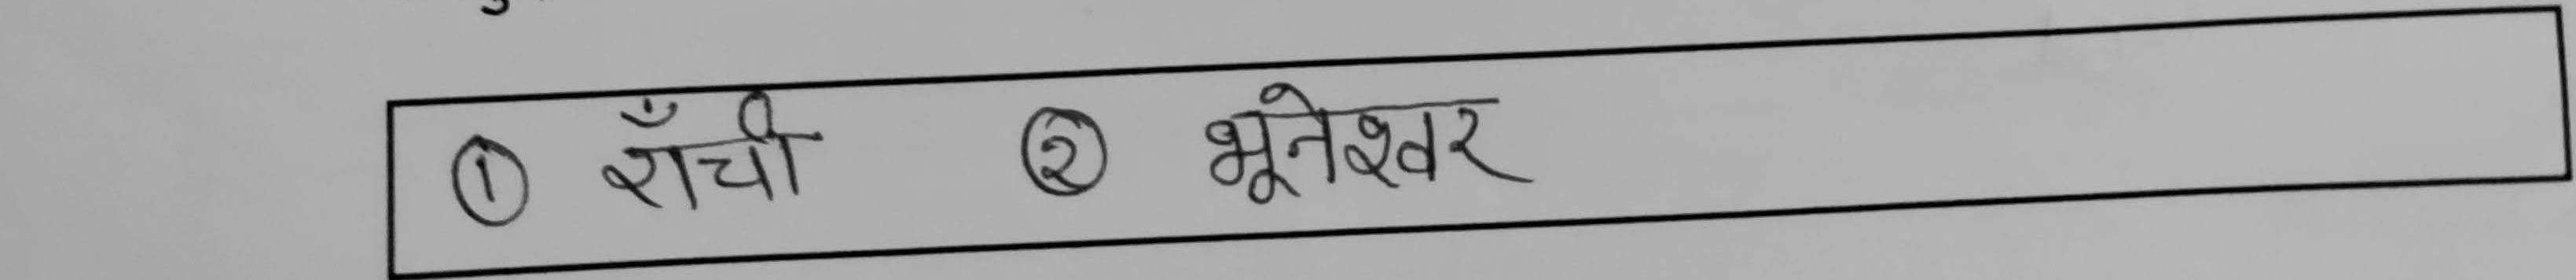 ① राँची ② भूनेश्वर